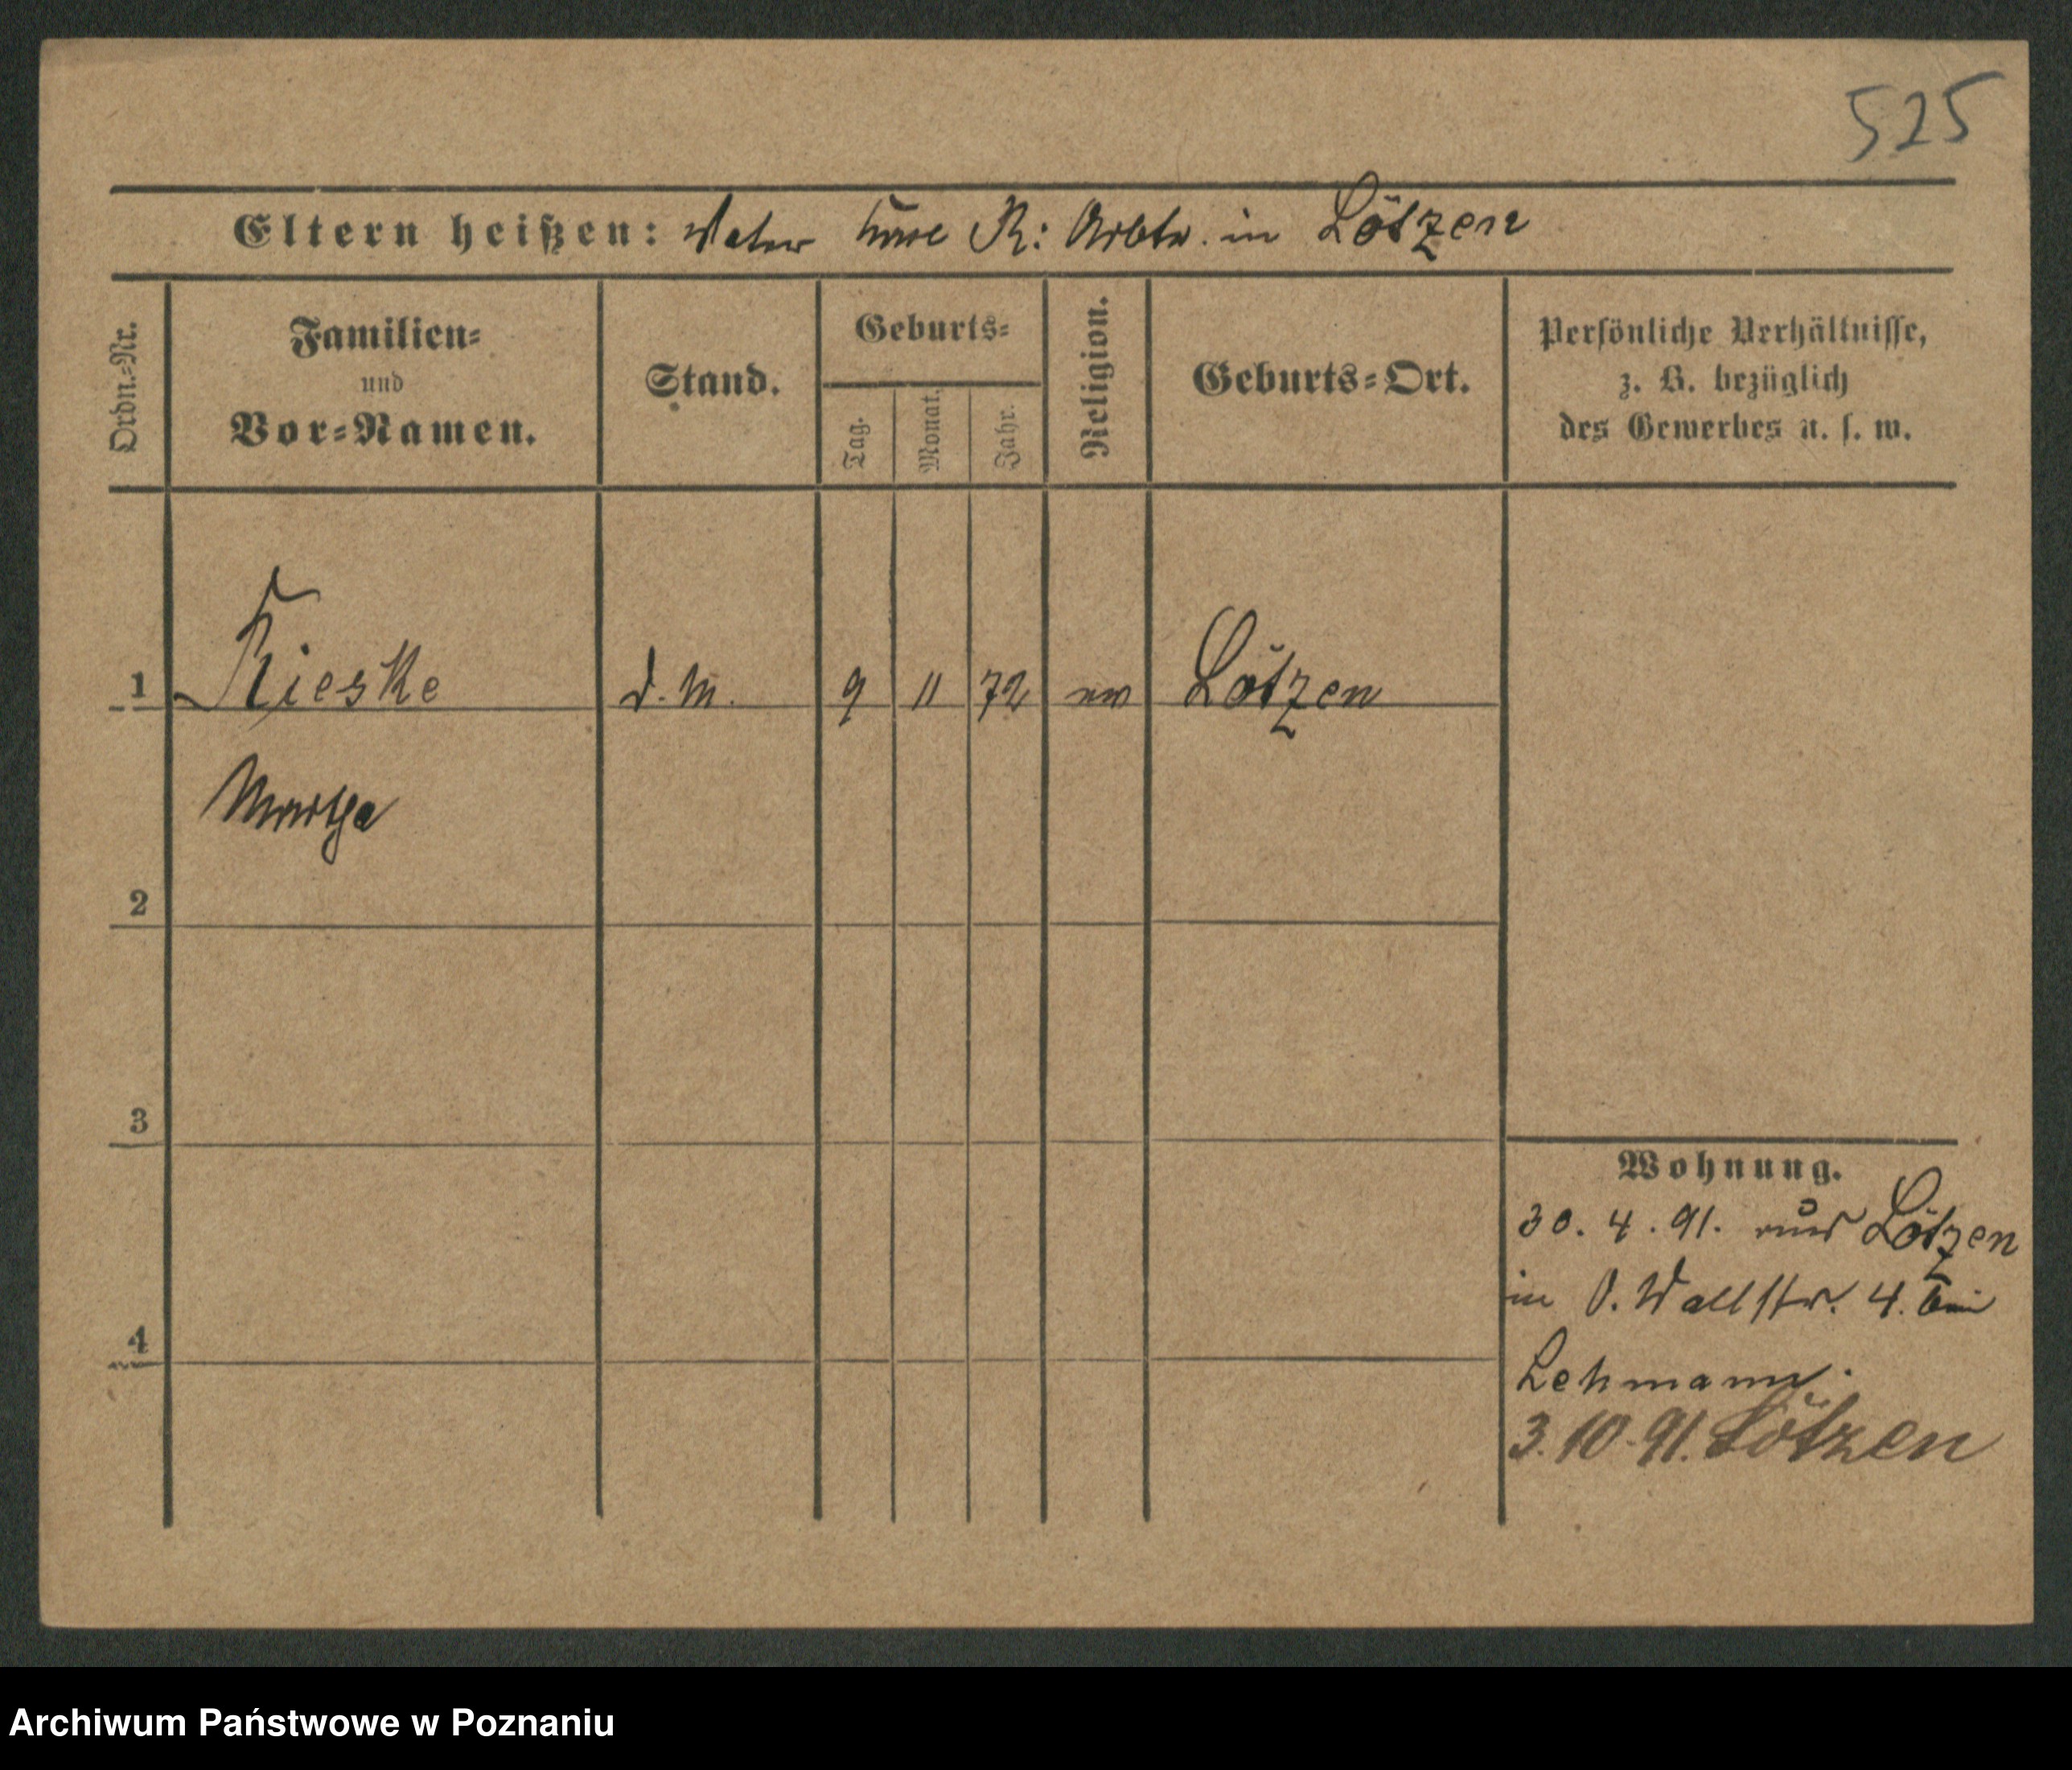 525
Eltern heißen: Vater Karl R: Arbtr. in Lötzen
Ordn.-Nr.
Familien-
und
Vor-Namen.
Stand.
Geburts-
Tag.
Monat.
Jahr.
Religion.
Geburts-Ort.
Persönliche Verhältnisse,
z. B. bezüglich
des Gewerbes u. s. w.
1 Rieske d. M. 9 11 72 ev Lötzen
Martha
2
3
Wohnung.
30. 4. 91. aus Lötzen
in O. Wallstr. 4. bei
4
Lehmann.
3.10.91. Lötzen
Archiwum Państwowe w Poznaniu